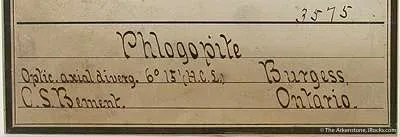 3575.
Phlogopite
Optic. axial diverg. 6° 15' (H.C.L.) Burgess,
C. S. Bement. Ontario.
© The Arkenstone, iRocks.com